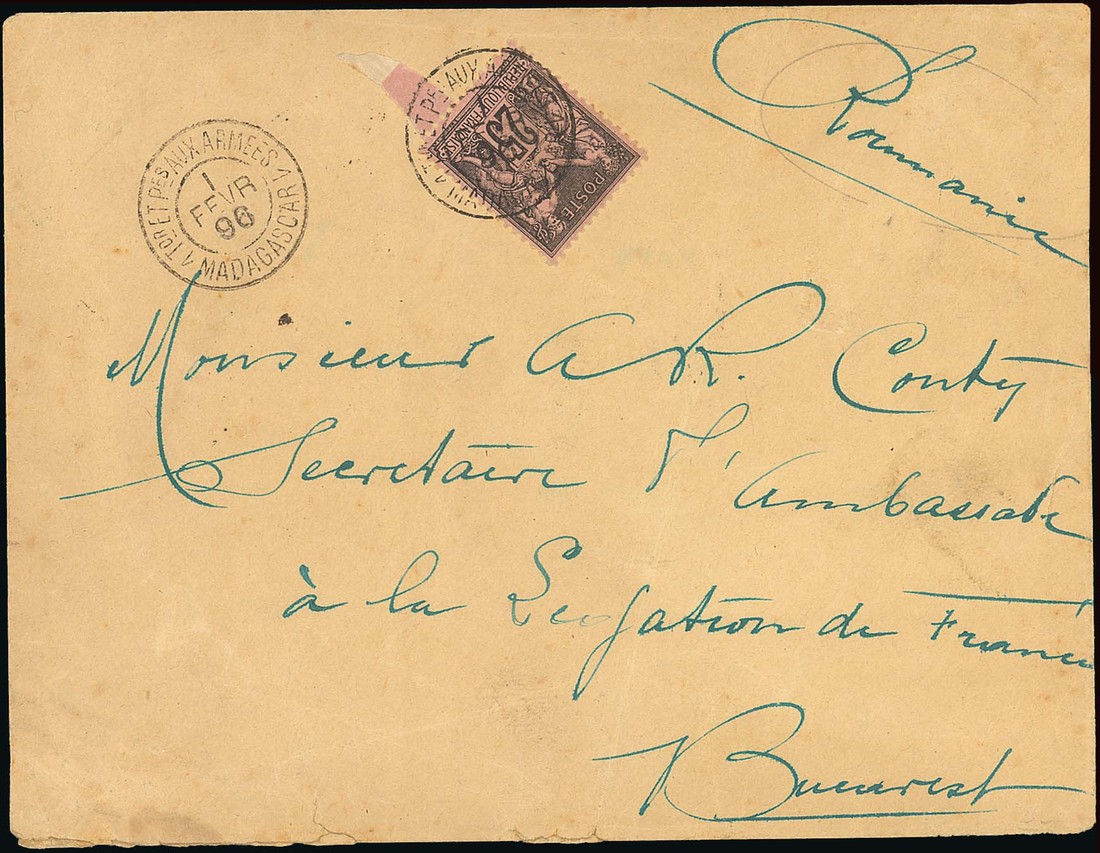 Roumanie
Tor ET Pes AUX ARMÉES
1
FEVR
96
1 MADAGASCAR 1
ET Pes AUX A
RÉPUBLIQUE FRANÇAISE
25
POSTE
Monsieur A R. Conty
Secretaire d'Ambassade
à la Legation de France
Bucarest